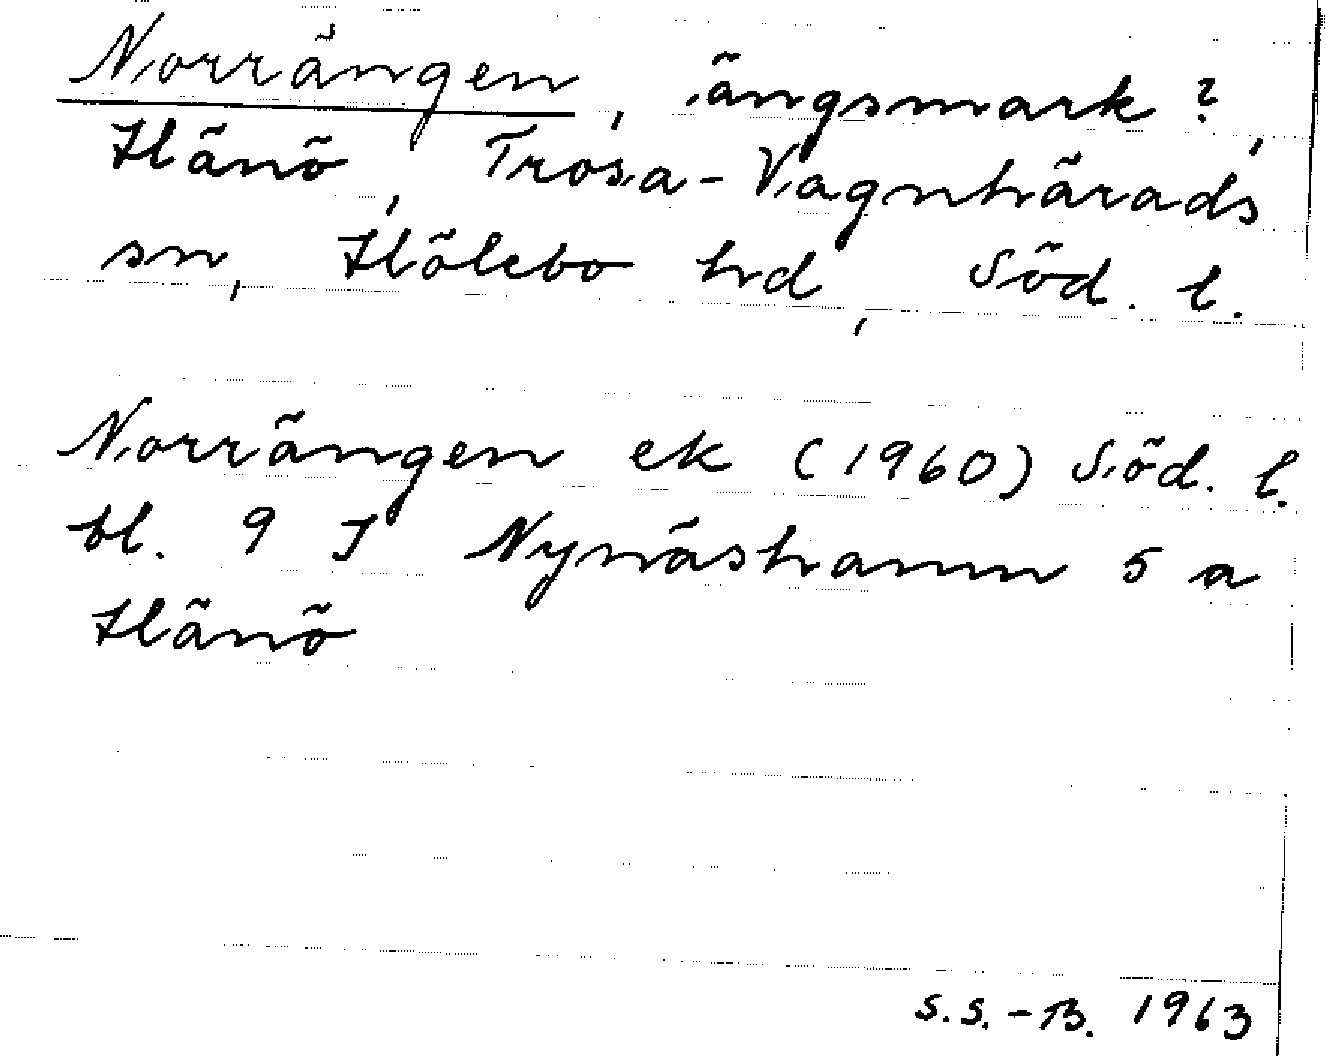 Norrängen, ängsmark?,
Hånö, Trosa-Vagnhärads
sn, Hölebo hrd, Söd. l.
Norrängen ek (1960) Söd. l.
bl. 9 I Nynäshamn 5 a
Hånö
S.S.-B. 1963